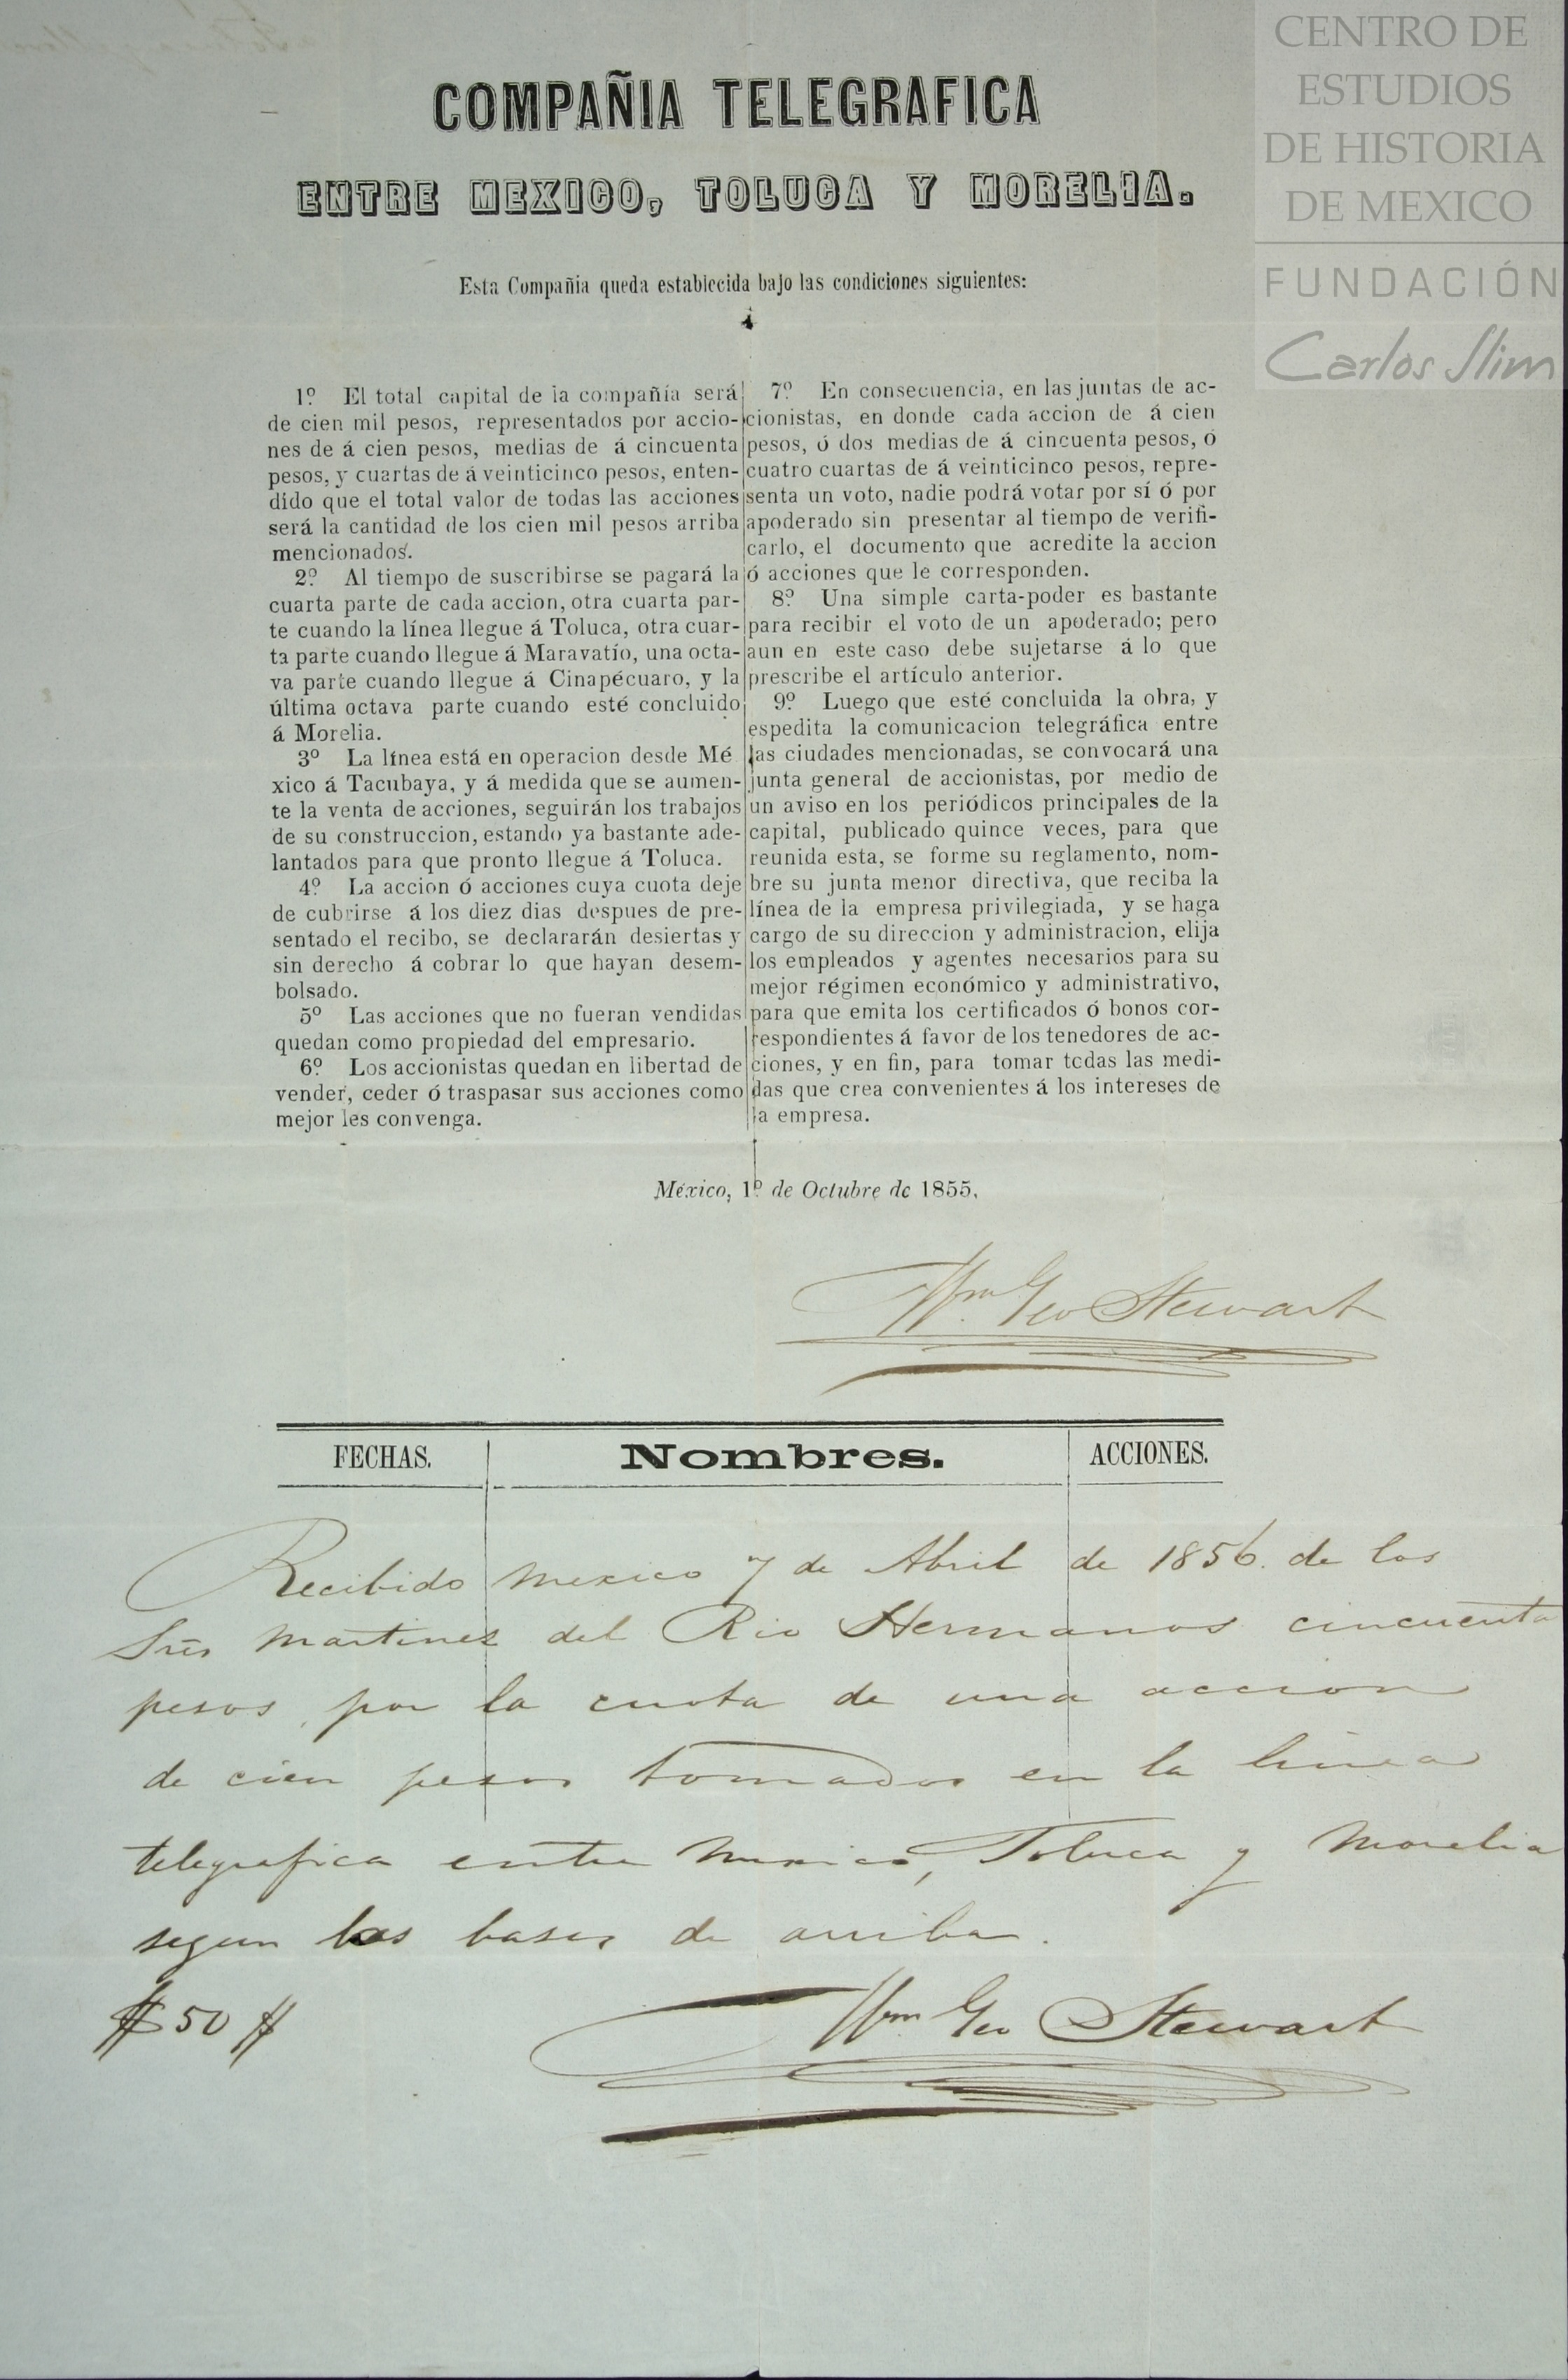 COMPAÑIA TELEGRAFICA
ENTRE MEXICO, TOLUCA Y MORELIA.
Esta Compañia queda establecida bajo las condiciones siguientes:
1º El total capital de la compañía será
de cien mil pesos, representados por accio-
nes de á cien pesos, medias de á cincuenta
pesos, y cuartas de á veinticinco pesos, enten-
dido que el total valor de todas las acciones
será la cantidad de los cien mil pesos arriba
mencionados.
2º Al tiempo de suscribirse se pagará la
cuarta parte de cada accion, otra cuarta par-
te cuando la línea llegue á Toluca, otra cuar-
ta parte cuando llegue á Maravatío, una octa-
va parte cuando llegue á Cinapécuaro, y la
última octava parte cuando esté concluido
á Morelia.
3º La línea está en operacion desde Mé
xico á Tacubaya, y á medida que se aumen-
te la venta de acciones, seguirán los trabajos
de su construccion, estando ya bastante ade-
lantados para que pronto llegue á Toluca.
4º La accion ó acciones cuya cuota deje
de cubrirse á los diez dias despues de pre-
sentado el recibo, se declararán desiertas y
sin derecho á cobrar lo que hayan desem-
bolsado.
5º Las acciones que no fueran vendidas
quedan como propiedad del empresario.
6º Los accionistas quedan en libertad de
vender, ceder ó traspasar sus acciones como
mejor les convenga.
7º En consecuencia, en las juntas de ac-
cionistas, en donde cada accion de á cien
pesos, ó dos medias de á cincuenta pesos, ó
cuatro cuartas de á veinticinco pesos, repre-
senta un voto, nadie podrá votar por sí ó por
apoderado sin presentar al tiempo de verifi-
carlo, el documento que acredite la accion
ó acciones que le corresponden.
8º Una simple carta-poder es bastante
para recibir el voto de un apoderado; pero
aun en este caso debe sujetarse á lo que
prescribe el artículo anterior.
9º Luego que esté concluida la obra, y
espedita la comunicacion telegráfica entre
las ciudades mencionadas, se convocará una
junta general de accionistas, por medio de
un aviso en los periódicos principales de la
capital, publicado quince veces, para que
reunida esta, se forme su reglamento, nom-
bre su junta menor directiva, que reciba la
línea de la empresa privilegiada, y se haga
cargo de su direccion y administracion, elija
los empleados y agentes necesarios para su
mejor régimen económico y administrativo,
para que emita los certificados ó bonos cor-
respondientes á favor de los tenedores de ac-
ciones, y en fin, para tomar todas las medi-
das que crea convenientes á los intereses de
la empresa.
México, 1º de Octubre de 1855.
Wm. Geo Stewart
FECHAS. Nombres. ACCIONES.
Recibido Mexico 7 de Abril de 1856. de los
Sres Martinez del Rio Hermanos cincuenta
pesos, por la cuota de una accion
de cien pesos tomados en la linea
telegrafica entre Mexico, Toluca y Morelia
segun las bases de arriba.
$50$
Wm Geo Stewart
CENTRO DE
ESTUDIOS
DE HISTORIA
DE MEXICO
FUNDACIÓN
Carlos Slim